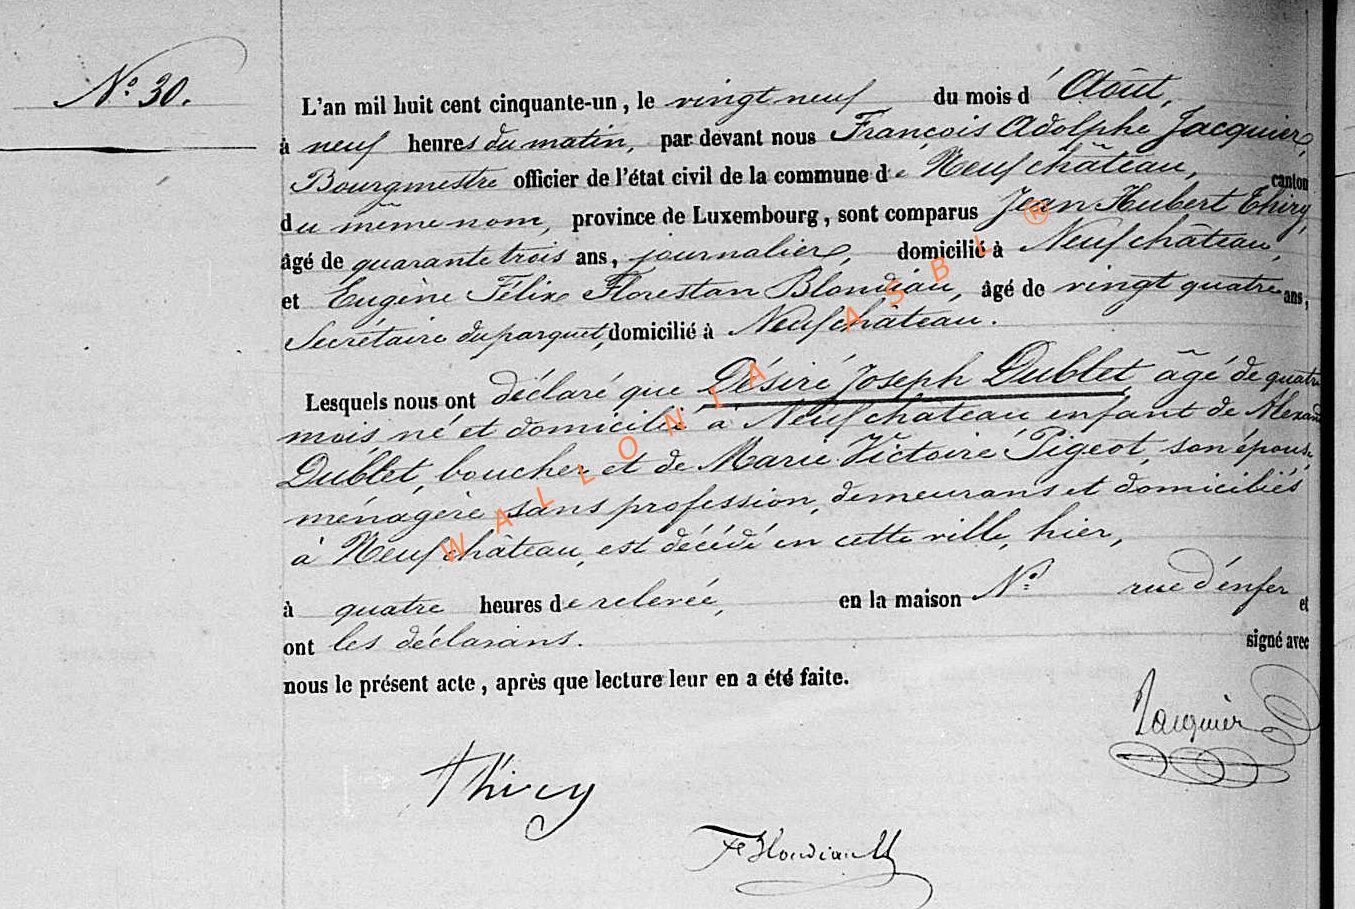 N.° 30.
L'an mil huit cent cinquante-un, le vingt neuf du mois d'Août,
à neuf heures du matin, par devant nous François Adolphe Jacquier,
Bourgmestre officier de l'état civil de la commune de Neufchâteau, canton
du même nom, province de Luxembourg, sont comparus Jean Hubert Thiry,
âgé de quarante trois ans, journalier, domicilié à Neufchâteau,
et Eugène Félix Florestan Blondiau, âgé de vingt quatre ans,
Secrétaire du parquet, domicilié à Neufchâteau.
Lesquels nous ont déclaré que Désiré Joseph Dublet, âgé de quatre
mois né et domicilié à Neufchateau enfant de Alexand
Dublet, boucher et de Marie Victoire Pigeot, son épouse,
ménagère sans profession, demeurans et domiciliés
à Neufchâteau, est décédé en cette ville, hier,
à quatre heures de relevée, en la maison N.° rue d'enfer et
ont les déclarans. signé avec
nous le présent acte, après que lecture leur en a été faite.
Jacquier
Thiry
WALLONIA ASBL ®